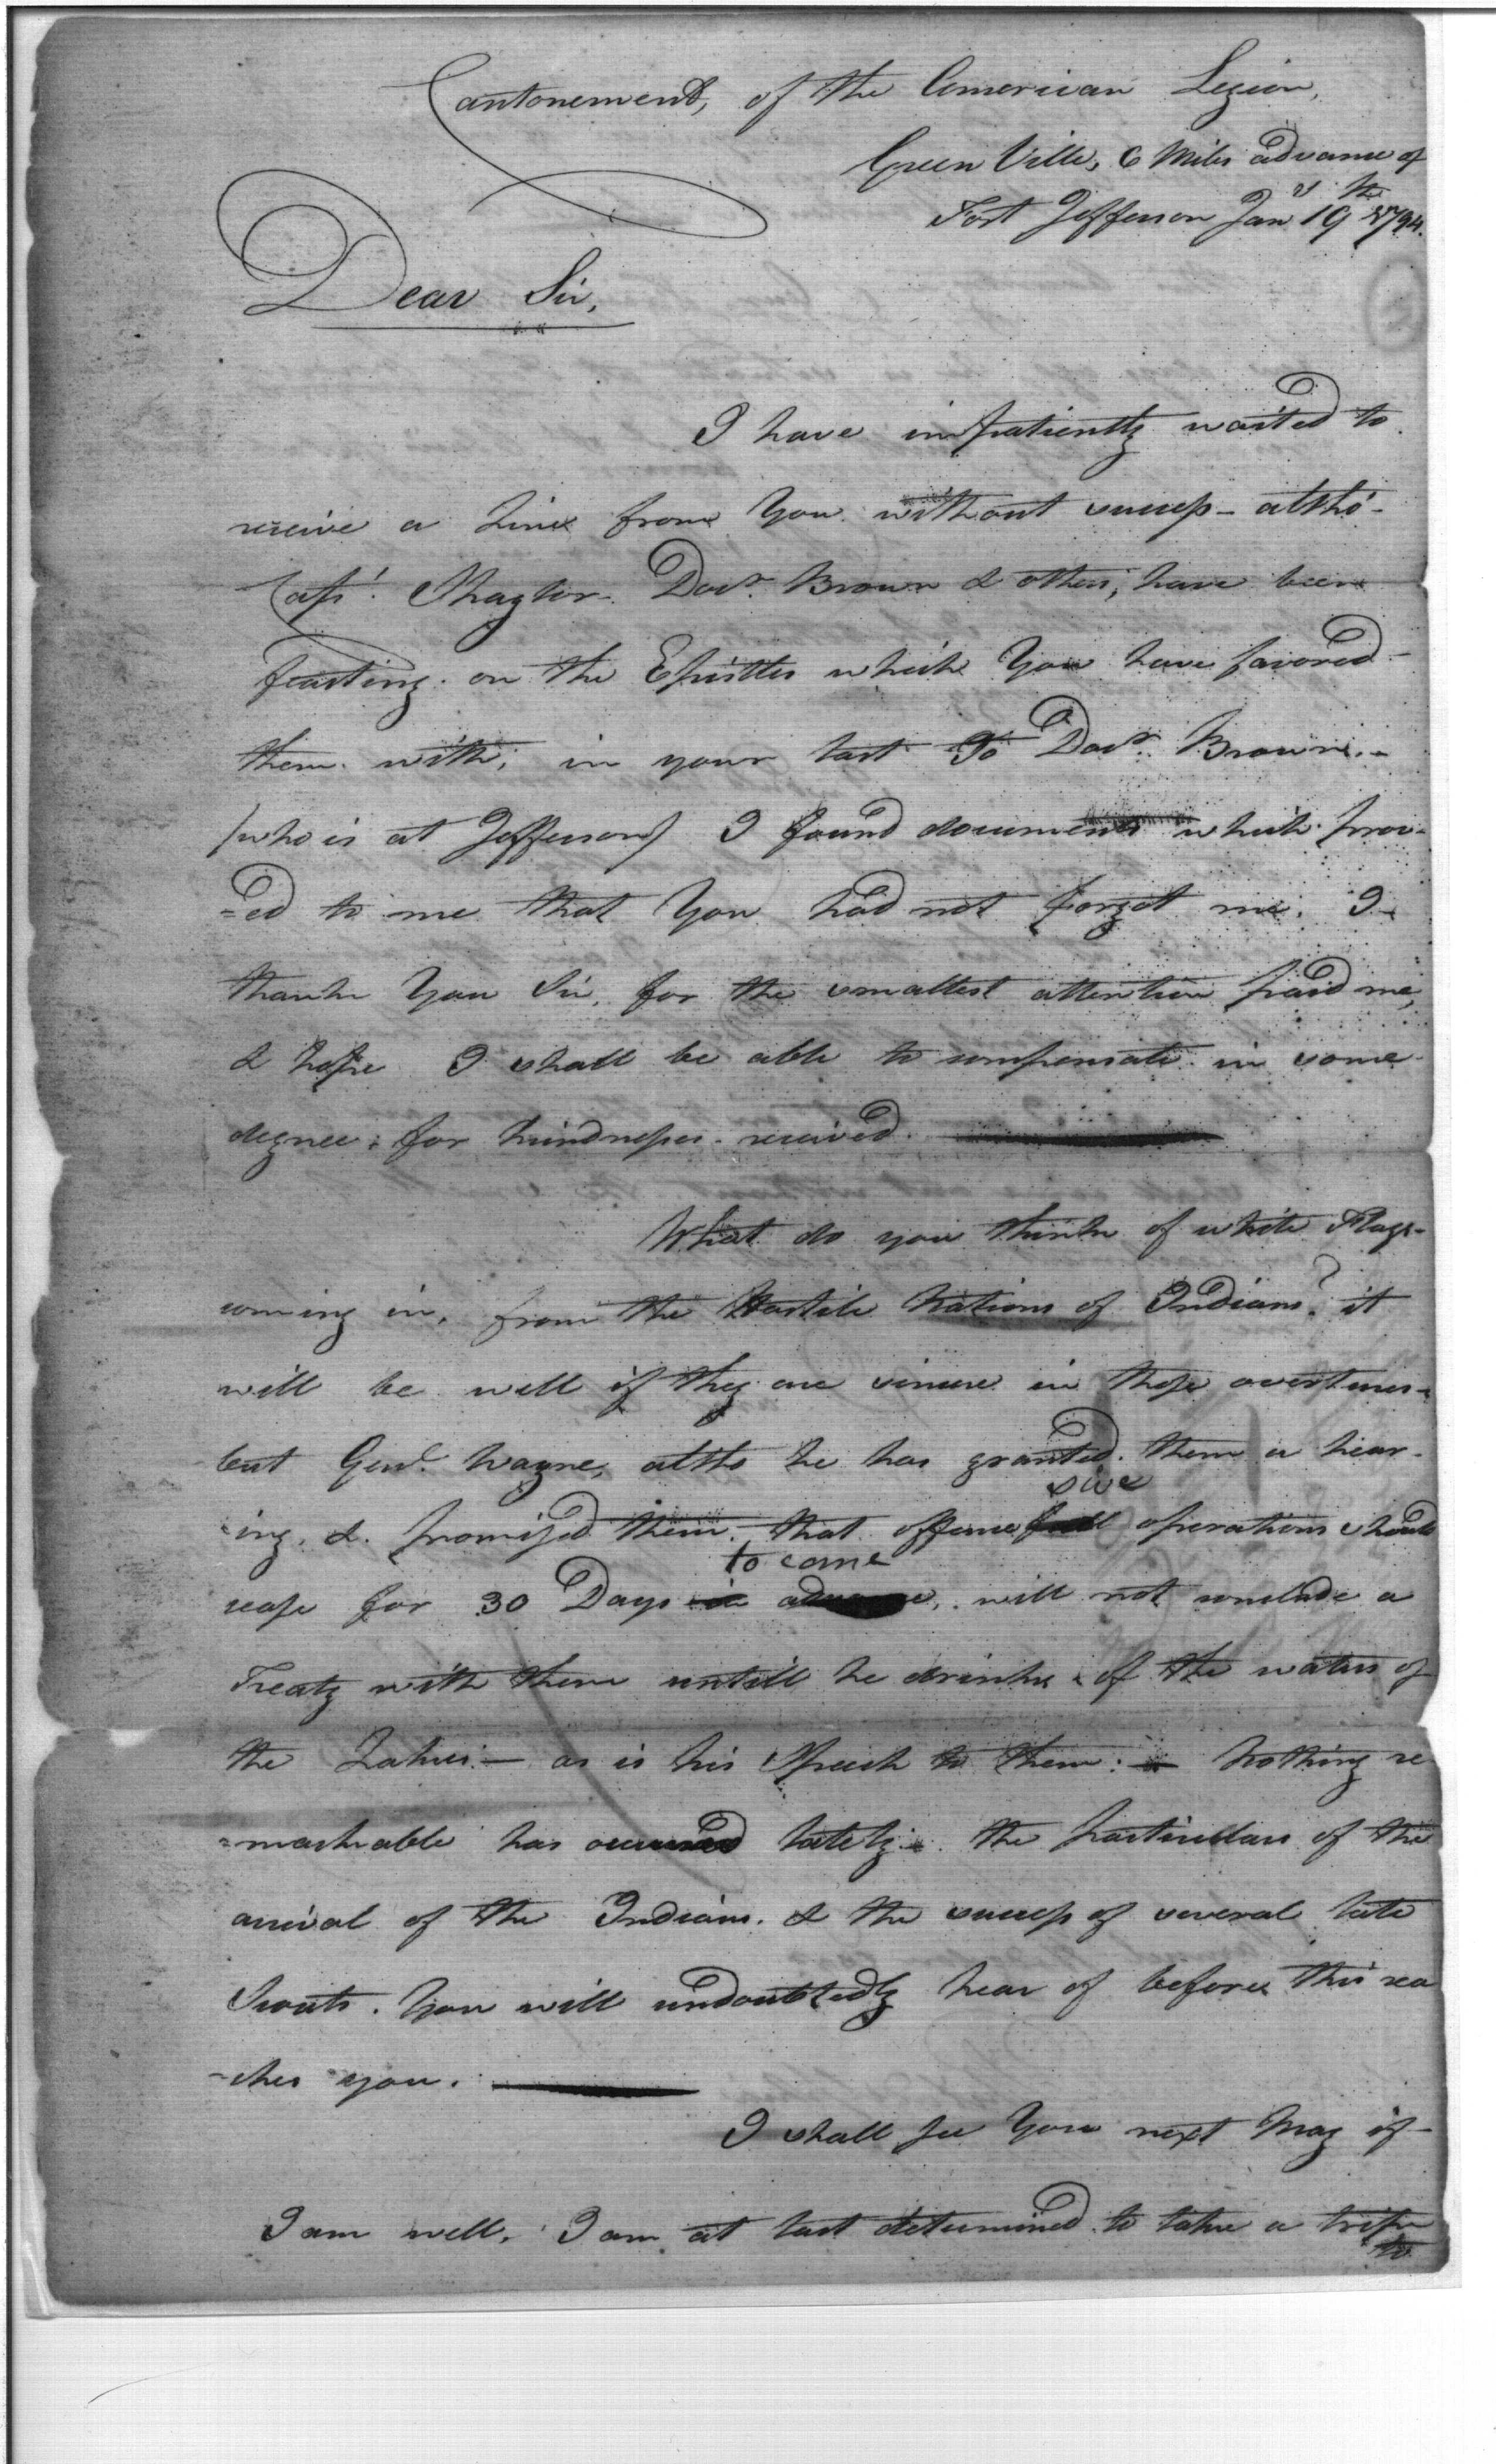 Cantonement, of the American Legion,
Green Ville, 6 Miles advance of
Fort Jefferson Jany 19th 1794.
Dear Sir,
I have impatiently waited to
receive a Line from You without success - altho'-
Capt. Shaylor. Doctr. Brown & others, have been
feasting on the Epistles which You have favored-
them with, in your last To Doctr. Brown.-
(who is at Jefferson) I found documents which prov-
=ed to me that You had not forgot me. I
thank You Sir, for the smallest attention paid me,
& hope I shall be able to compensate in some
degree, for kindnesses received.
What do you think of white Flags-
coming in, from the Hostile Nations of Indians? it
will be well if they are sincere in those overtures-
but Genl. Wayne, altho he has granted them a hear-
sive
ing, & promised them that offence operations should
to come
cease for 30 Days in advance, will not conclude a
Treaty with them untill he drinks of the waters of
the Lakes - as is his Speech to them: - Nothing re
=markable has occurred lately - the particulars of the
arrival of the Indians. & the success of several late
Scouts. You will undoubtedly hear of before this rea
-ches you.
I shall see You next May if-
I am well, I am at last determined to take a trip
to